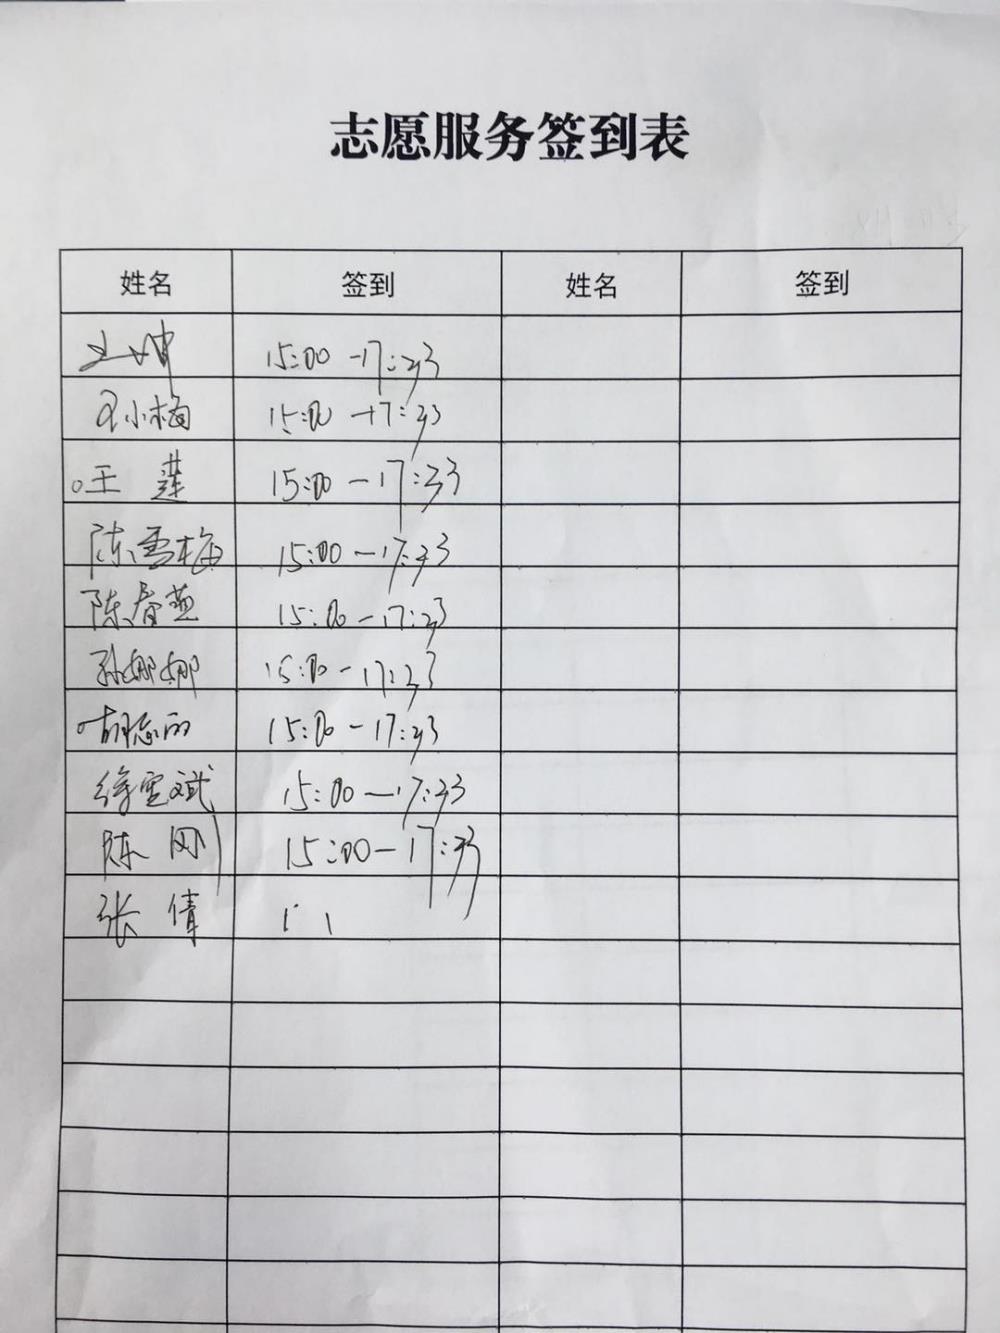 志愿服务签到表
姓名 签到 姓名 签到
15:00-17:33
王小梅 15:00-17:33
王莲 15:00-17:33
陈雪梅 15:00-17:33
陈春燕 15:00-17:33
孙娜娜 15:00-17:33
胡志丽 15:00-17:33
徐雪斌 15:00-17:33
陈刚 15:00-17:33
张倩